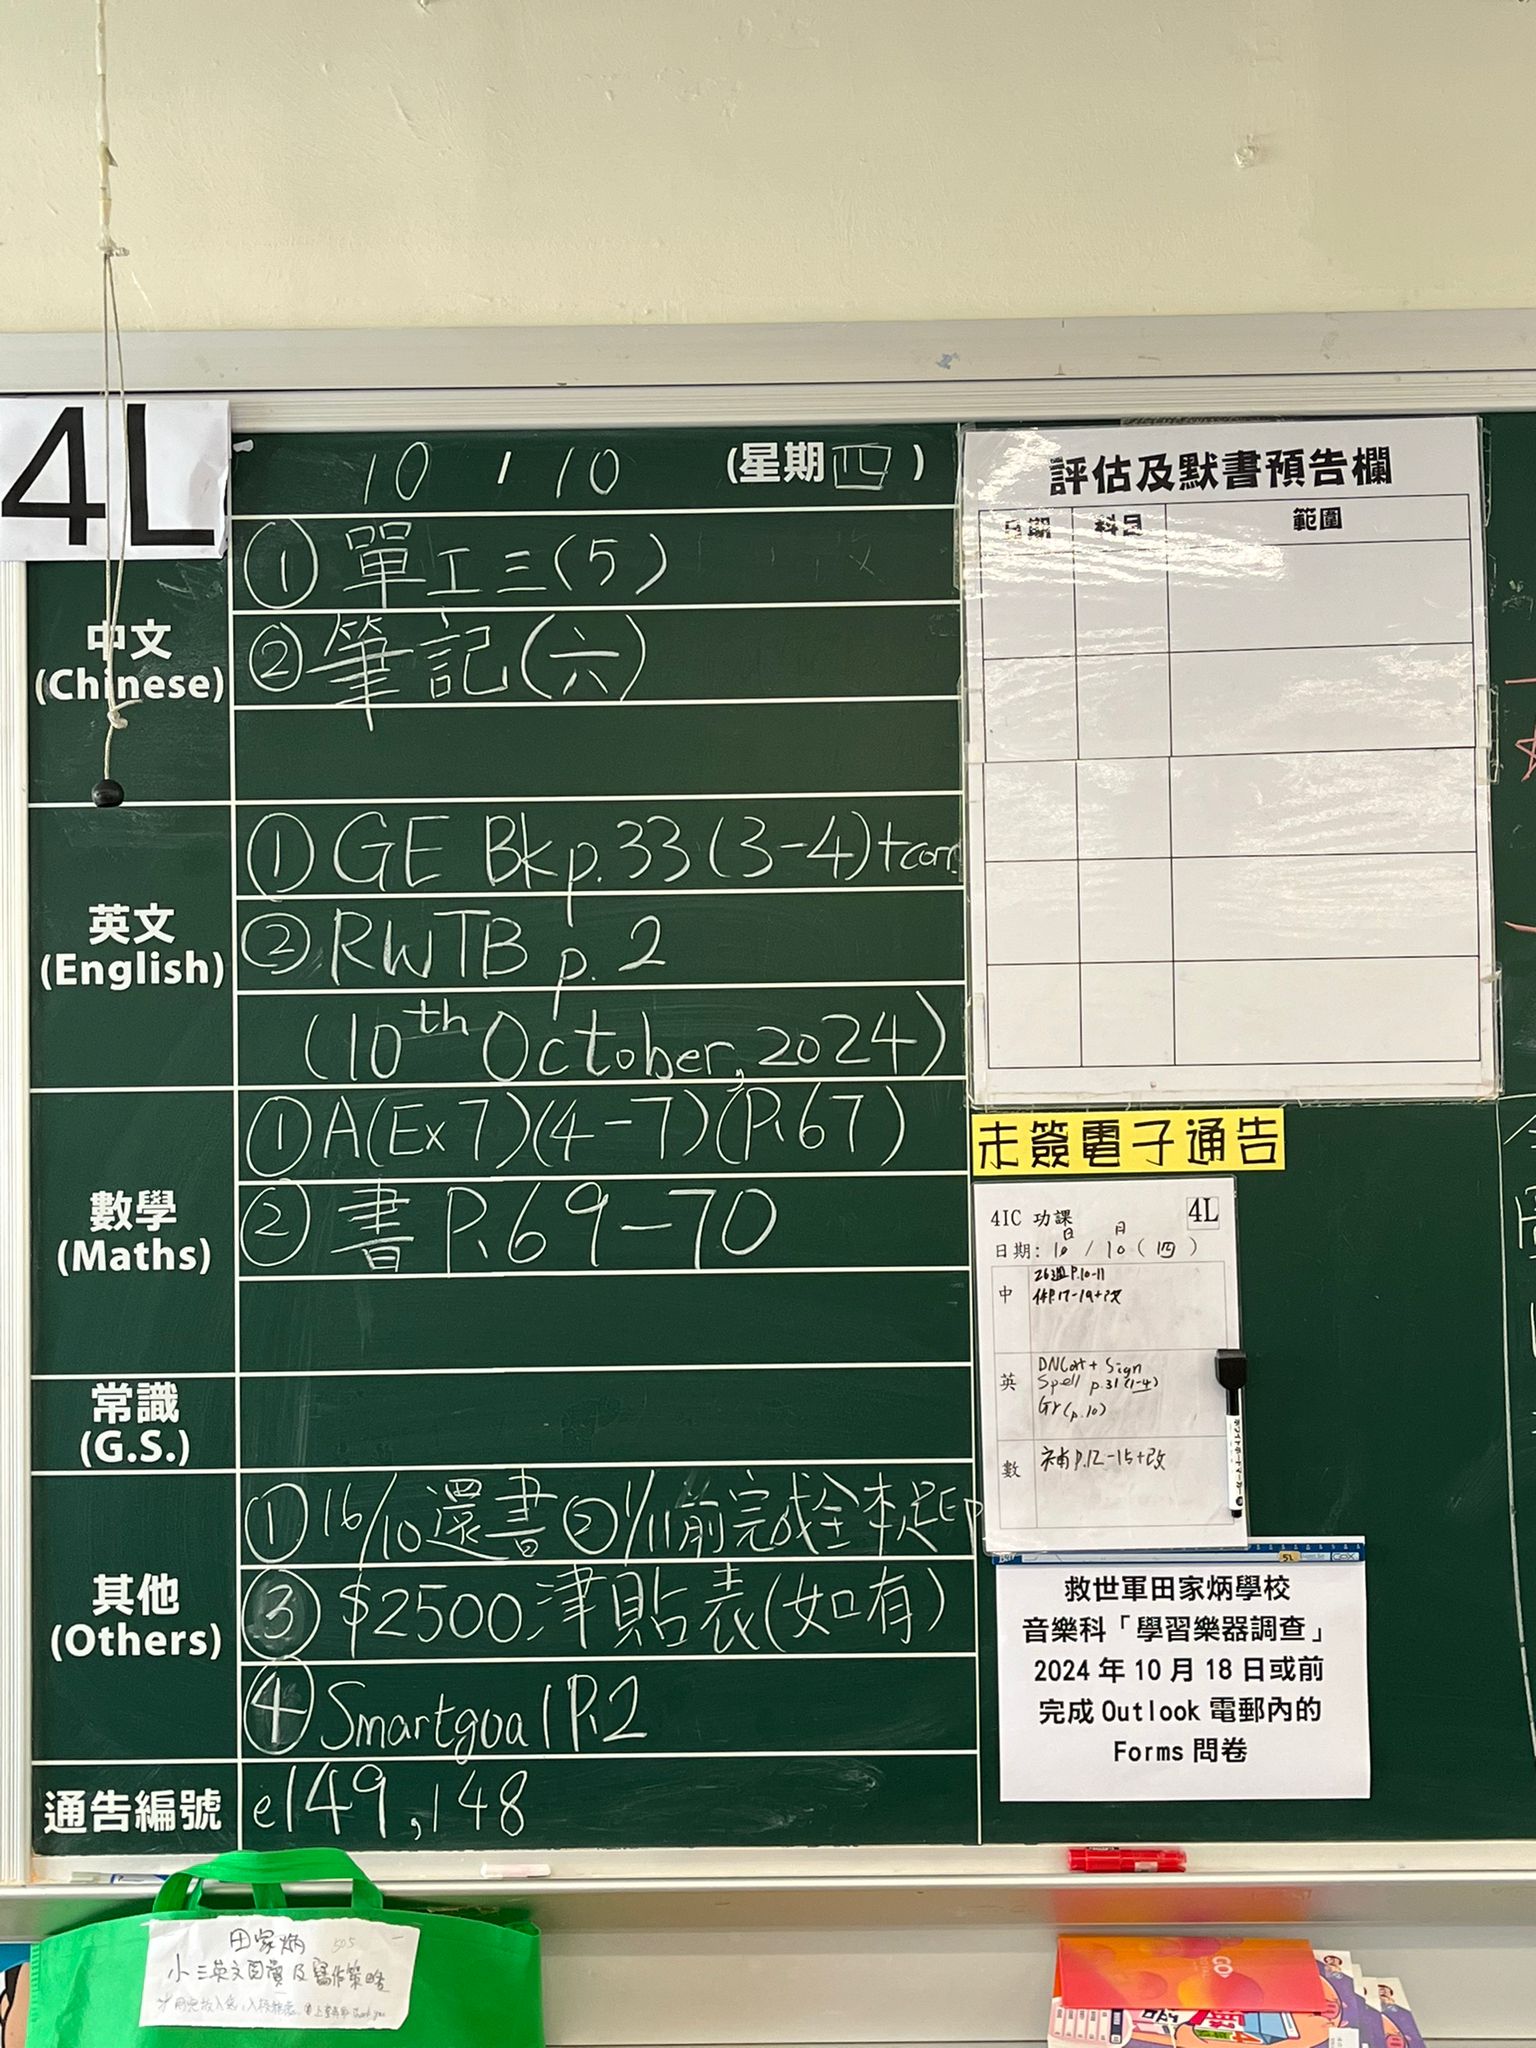 4L
10 / 10 (星期四)
中文
(Chinese)
① 單工三(5)
② 筆記(六)
英文
(English)
① GE Bk p.33(3-4)+corr.
② RWTB p.2
(10th October, 2024)
數學
(Maths)
① A(Ex 7)(4-7)(P.67)
② 書 P.69-70
常識
(G.S.)
其他
(Others)
① 16/10還書 ② 1/11前完成全本
③ $2500津貼表(如有)
④ Smartgoal P.2
通告編號
e149,148
評估及默書預告欄
日期 科目 範圍
未簽電子通告
4IC 功課 4L
日 月
日期: 10 / 10 (四)
中
P.10-11
P.17-19+改
英
+ Sign
Spell p.31(1-4)
Gr(p.10)
數
補P.12-15+改
救世軍田家炳學校
音樂科「學習樂器調查」
2024 年 10 月 18 日或前
完成 Outlook 電郵內的
Forms 問卷
田家炳
小三英文閱讀及寫作策略
GO